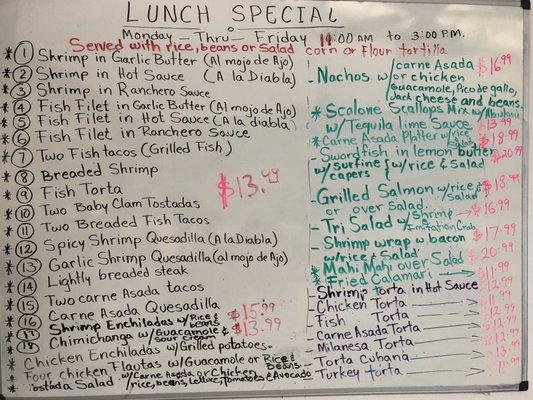 LUNCH SPECIAL
Monday - Thru - Friday 11:00 AM to 3:00 P.M.
Served with rice, beans or Salad corn or Flour tortilla
* 1 Shrimp in Garlic Butter (Al mojo de Ajo)
* 2 Shrimp in Hot Sauce (A la Diabla)
* 3 Shrimp in Ranchero Sauce
* 4 Fish Filet in Garlic Butter (Al mojo de Ajo)
* 5 Fish Filet in Hot Sauce (A la diabla)
* 6 Fish Filet in Ranchero Sauce
* 7 Two Fish tacos (Grilled Fish)
* 8 Breaded Shrimp
* 9 Fish Torta
* 10 Two Baby Clam Tostadas
* 11 Two Breaded Fish Tacos
* 12 Spicy Shrimp Quesadilla (A la Diabla)
* 13 Garlic Shrimp Quesadilla (al mojo de Ajo)
* 14 Lightly breaded steak
* 15 Two carne Asada tacos
$13.99
* 16 Carne Asada Quesadilla
* 17 Shrimp Enchiladas w/Rice & beans $15.99
* 18 Chimichanga w/Guacamole & sour cream $13.99
* Chicken Enchiladas w/Grilled potatoes
* Four chicken Flautas w/Guacamole or Rice & Beans
* Tostada Salad w/Carne Asada or Chicken
/rice, beans, Lettuce, Tomatoes & Avocado
- Nachos w/carne Asada or chicken $16.99
Guacamole, Pico de gallo,
Jack cheese and beans
* Scalone Scallops Mix w/Abulone
w/Tequila lime Sauce $13.99
* Carne Asada Platter w/rice Salad $18.99
- Swordfish in lemon butter $20.99
w/surfine & capers w/rice & Salad
- Grilled Salmon w/rice & Salad $18.99
or over Salad
- Tri Salad w/Shrimp Imitation Crab $16.99
- Shrimp wrap w bacon $17.99
w/rice & Salad
* Mahi Mahi over Salad $20.99
* Fried Calamari $11.99
- Shrimp Torta in Hot Sauce $12.99
- Chicken Torta $11.99
- Fish Torta $12.99
- Carne Asada Torta $12.99
- Milanesa Torta $12.99
- Torta Cubana $13.99
- Turkey torta $11.99